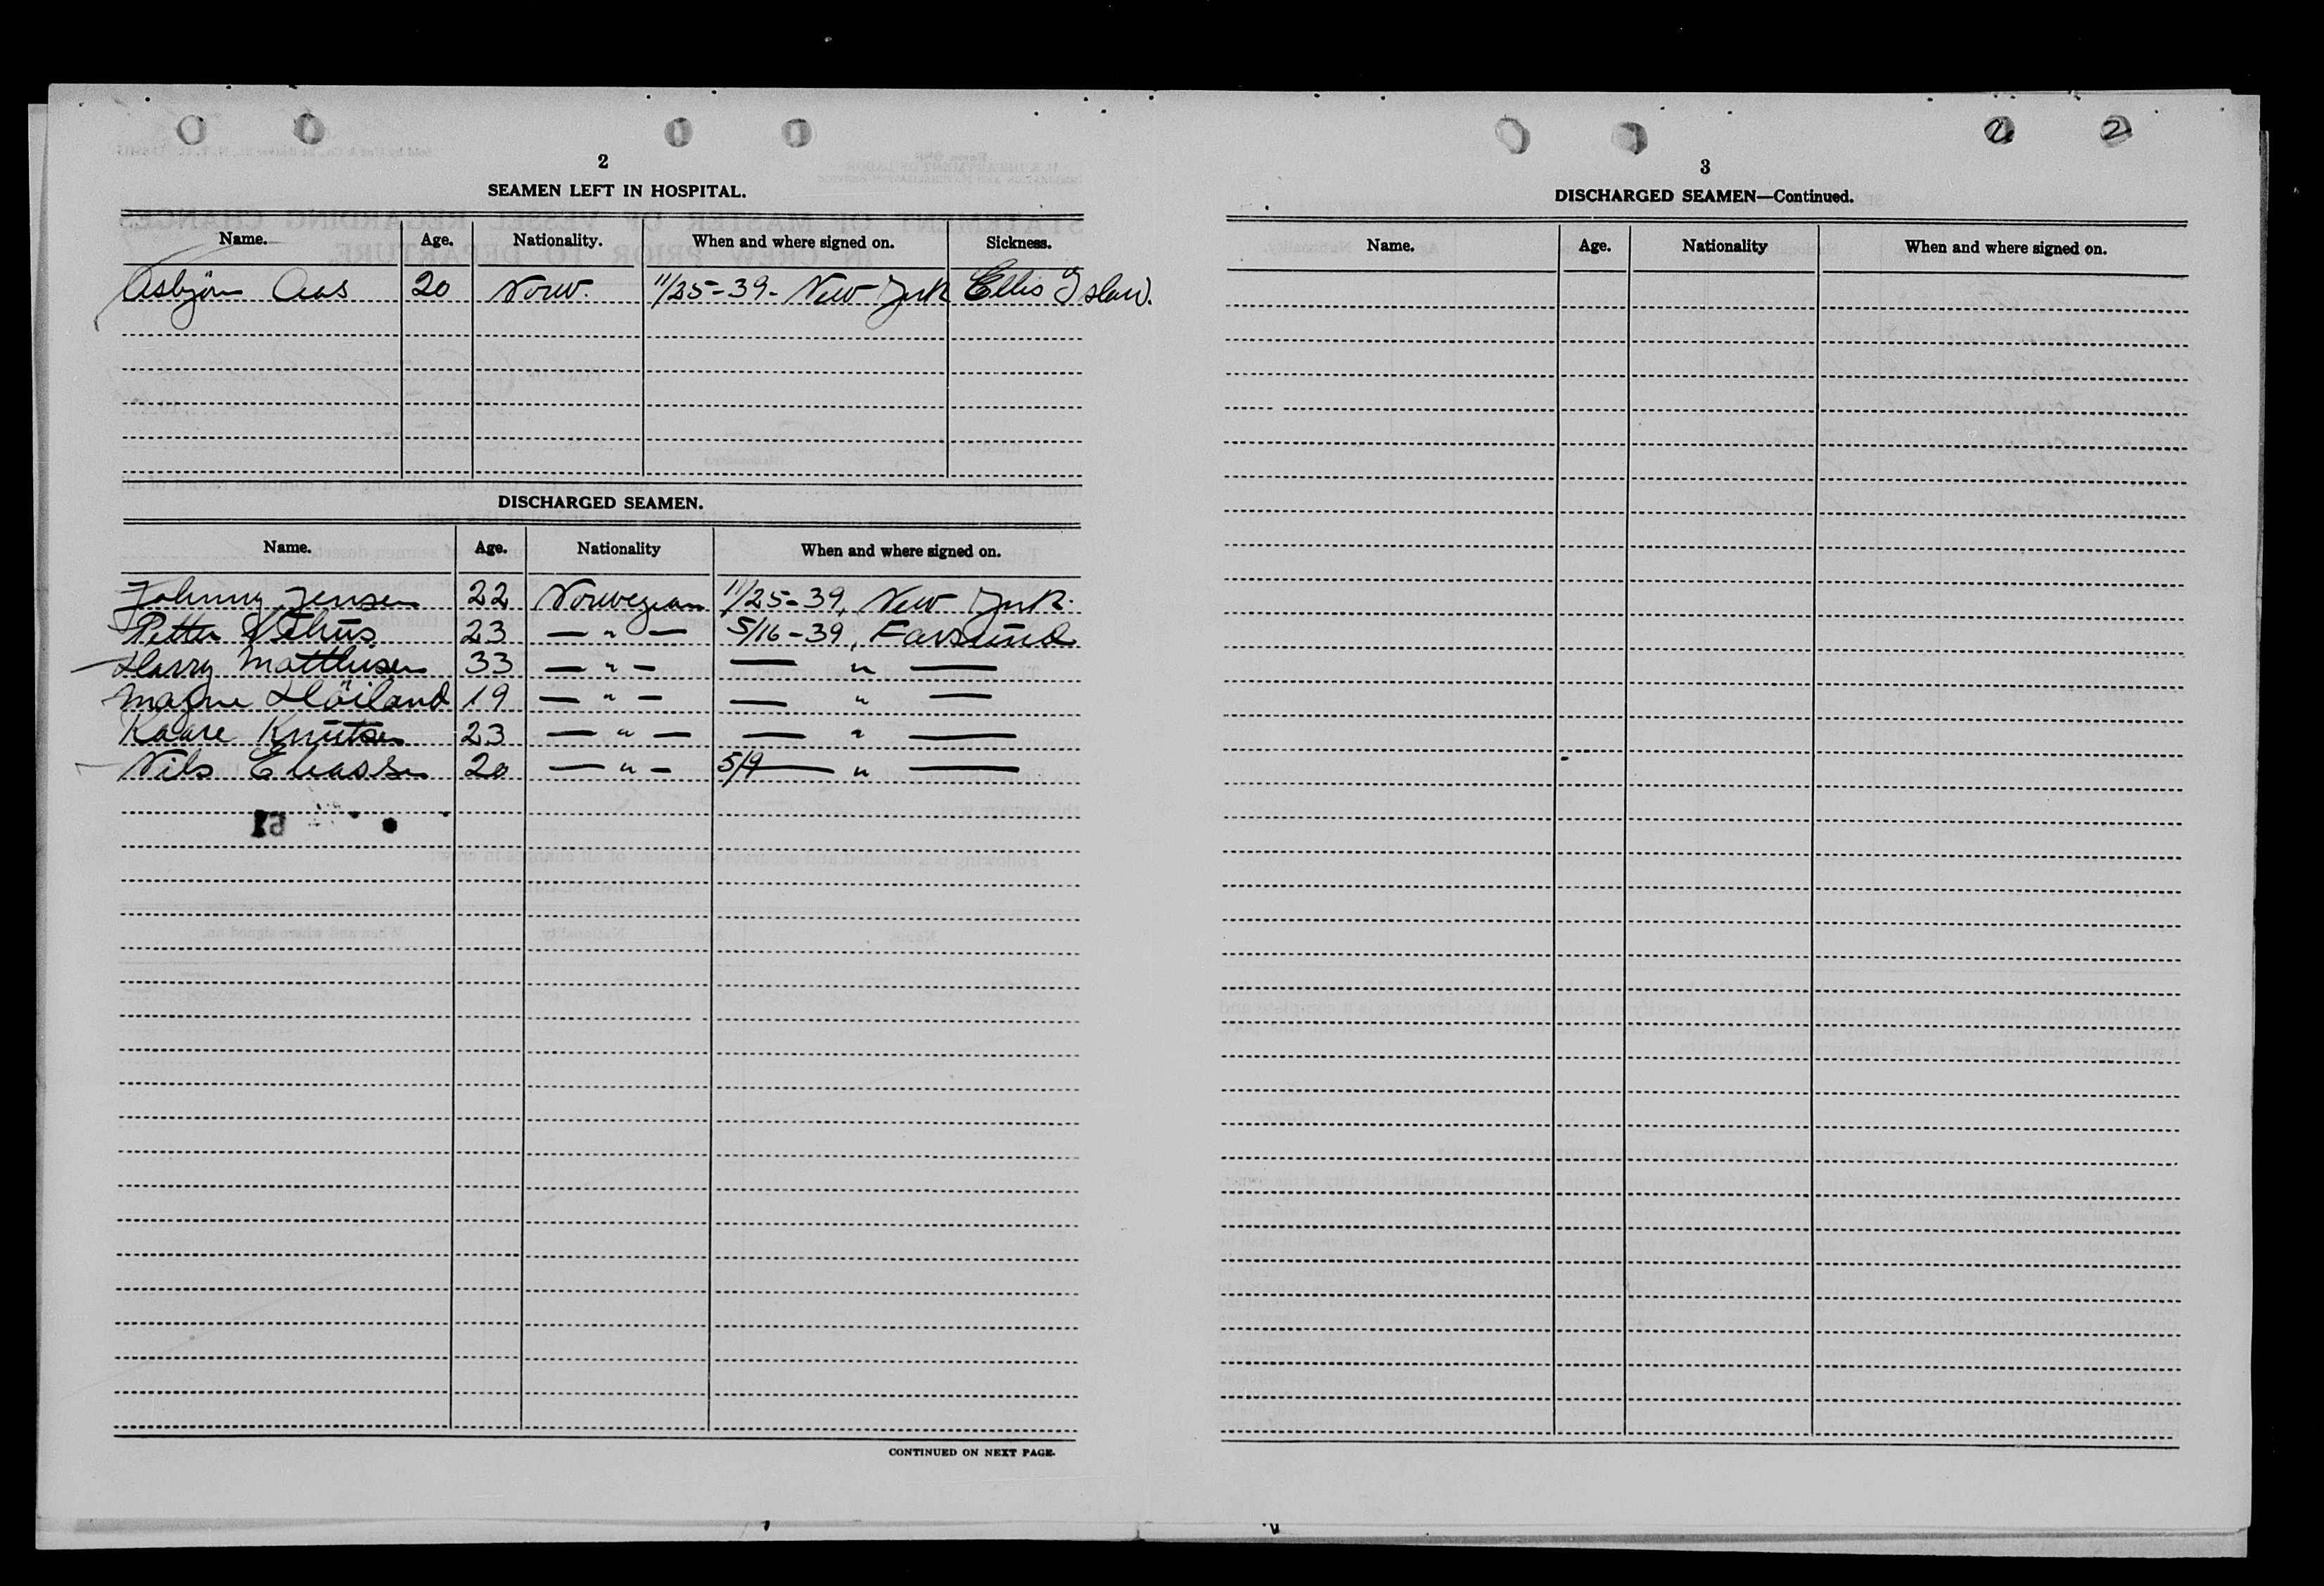 2
SEAMEN LEFT IN HOSPITAL.
Name. Age. Nationality. When and where signed on. Sickness.
Asbjörn Aas 20 Norw. 11/25-39- New York Ellis Island.
DISCHARGED SEAMEN.
Name. Age. Nationality When and where signed on.
Johnny Jensen 22 Norwegian 11/25-39, New York.
Petter 23 — " — 5/16-39, Farsund
Harry Matthisen 33 — " — — " —
Magne Höiland 19 — " — — " —
Kaare Knutsen 23 — " — — " —
Nils Eliassen 20 — " — 5/9 — " —
CONTINUED ON NEXT PAGE.
2 2
3
DISCHARGED SEAMEN—Continued.
Name. Age. Nationality When and where signed on.